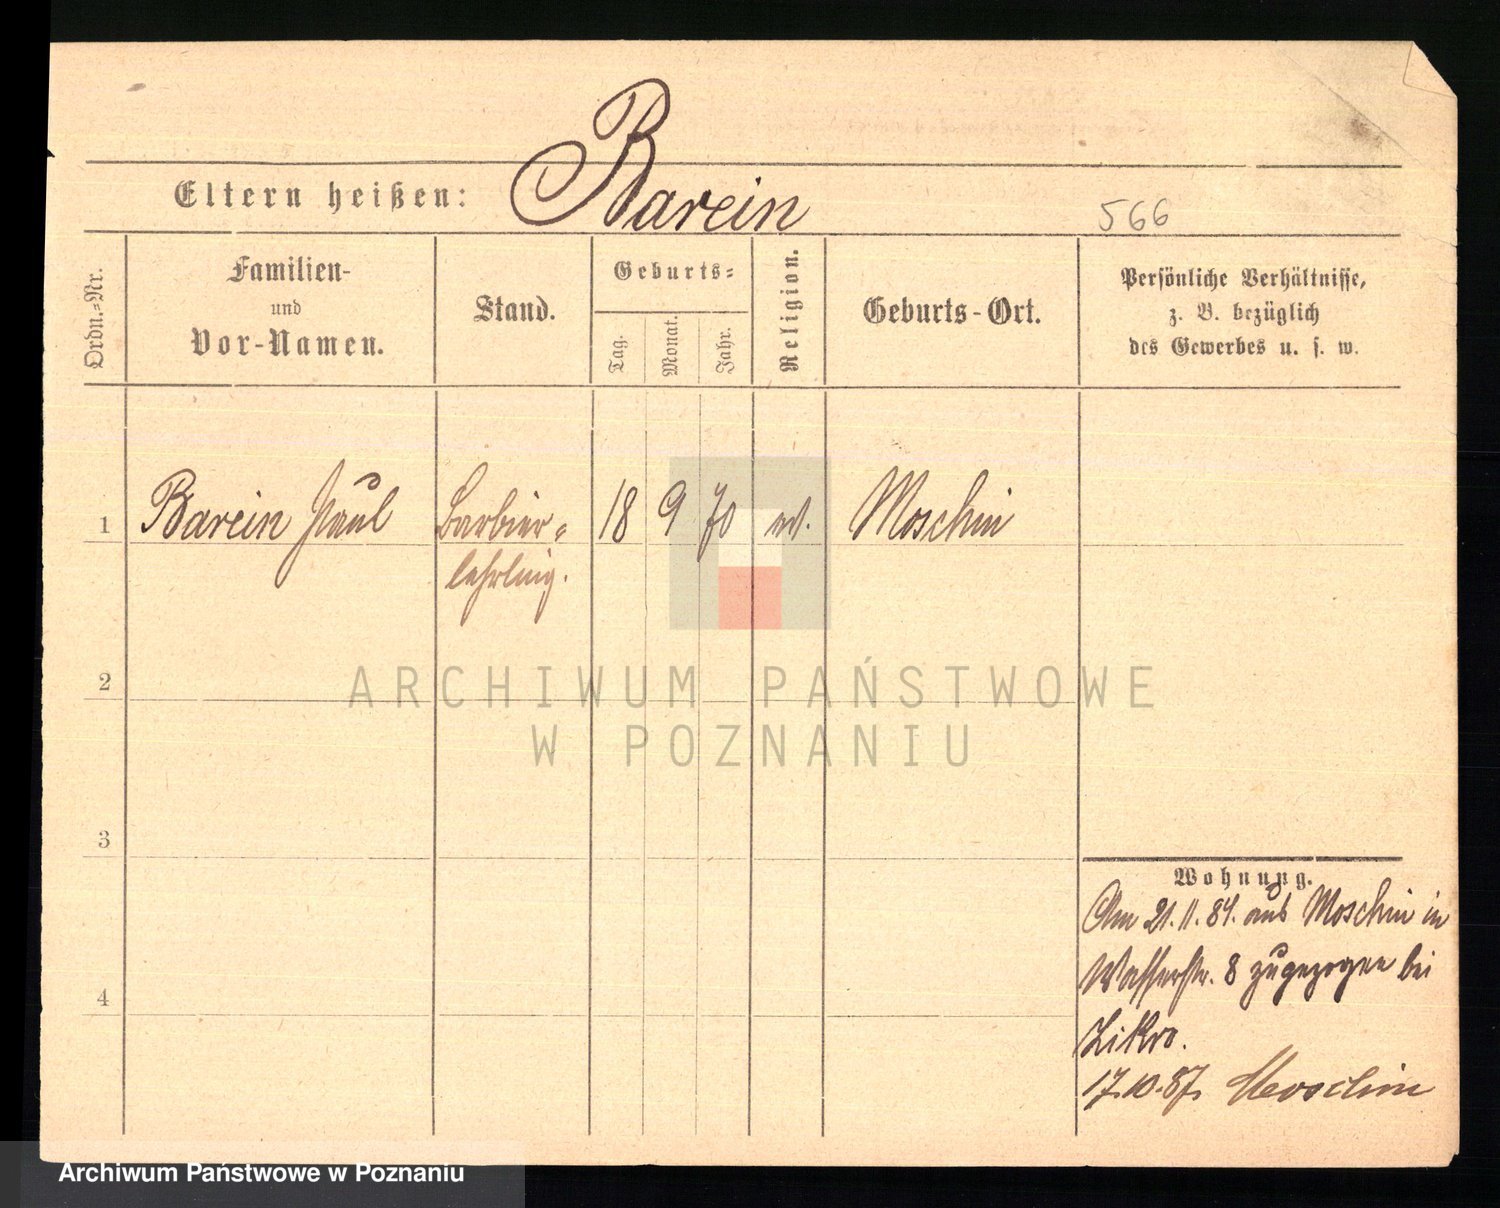 Eltern heißen: Barein
566
Ordn.-Nr.
Familien-
und
Vor-Namen.
Stand.
Geburts-
Tag.
Monat.
Jahr.
Religion.
Geburts-Ort.
Persönliche Verhältnisse,
z. B. bezüglich
des Gewerbes u. s. w.
1 Barein Paul Barbier- 18 9 70 ev. Moschin
lehrling.
2
ARCHIWUM PAŃSTWOWE
W POZNANIU
3
Wohnung.
Am 21.11.84. aus Moschin in
Wasserstr. 8 zugezogen bei
4
17.10.87. Moschin
Archiwum Państwowe w Poznaniu